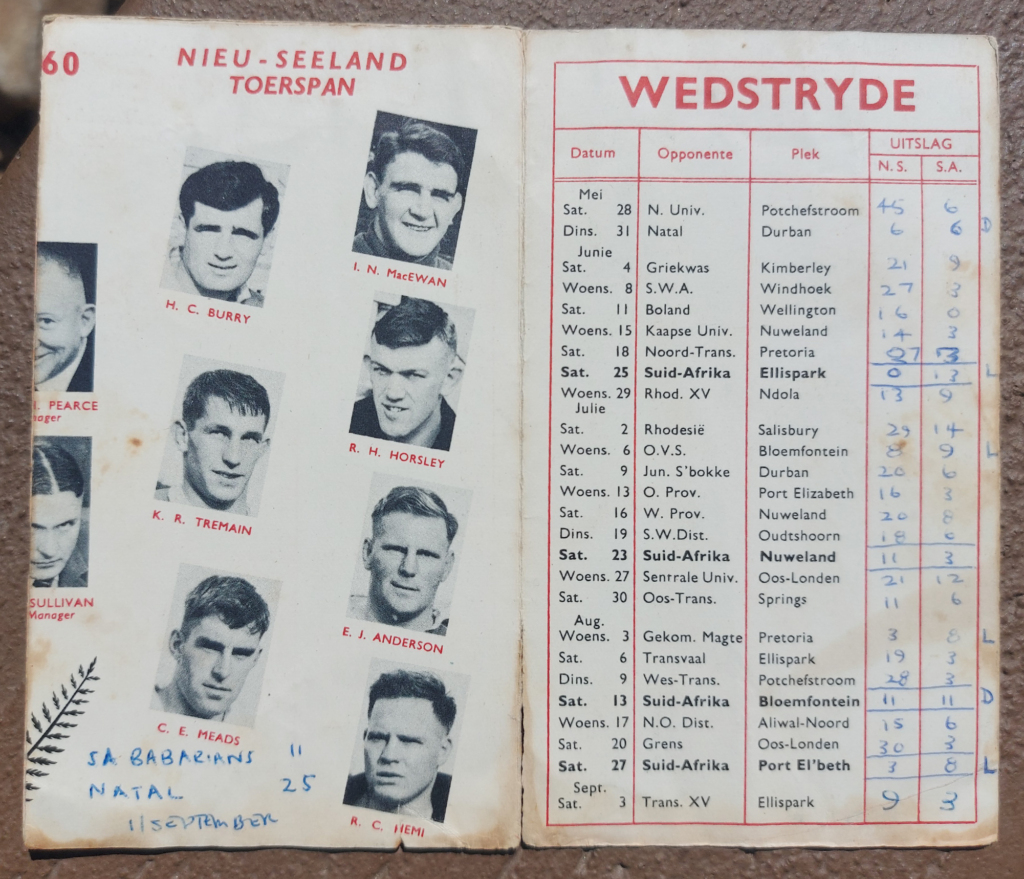 60
NIEU - SEELAND
TOERSPAN
I. N. MacEWAN
H. C. BURRY
PEARCE
R. H. HORSLEY
K. R. TREMAIN
SULLIVAN
Manager
E. J. ANDERSON
C. E. MEADS
R. C. HEMI
SA BABARIANS 11
NATAL 25
11 SEPTEMBER
WEDSTRYDE
Datum Opponente Plek UITSLAG
N. S. S.A.
Mei
Sat. 28 N. Univ. Potchefstroom 45 6
Dins. 31 Natal Durban 6 6 D
Junie
Sat. 4 Griekwas Kimberley 21 9
Woens. 8 S.W.A. Windhoek 27 3
Sat. 11 Boland Wellington 16 0
Woens. 15 Kaapse Univ. Nuweland 14 3
Sat. 18 Noord-Trans. Pretoria 27 3
Sat. 25 Suid-Afrika Ellispark 0 13 L
Woens. 29 Rhod. XV Ndola 13 9
Julie
Sat. 2 Rhodesië Salisbury 29 14
Woens. 6 O.V.S. Bloemfontein 8 9 L
Sat. 9 Jun. S'bokke Durban 20 6
Woens. 13 O. Prov. Port Elizabeth 16 3
Sat. 16 W. Prov. Nuweland 20 8
Dins. 19 S.W.Dist. Oudtshoorn 18 6
Sat. 23 Suid-Afrika Nuweland 11 3
Woens. 27 Sentrale Univ. Oos-Londen 21 12
Sat. 30 Oos-Trans. Springs 11 6
Aug.
Woens. 3 Gekom. Magte Pretoria 3 8 L
Sat. 6 Transvaal Ellispark 19 3
Dins. 9 Wes-Trans. Potchefstroom 28 3
Sat. 13 Suid-Afrika Bloemfontein 11 11 D
Woens. 17 N.O. Dist. Aliwal-Noord 15 6
Sat. 20 Grens Oos-Londen 30 3
Sat. 27 Suid-Afrika Port El'beth 3 8 L
Sept.
Sat. 3 Trans. XV Ellispark 9 3